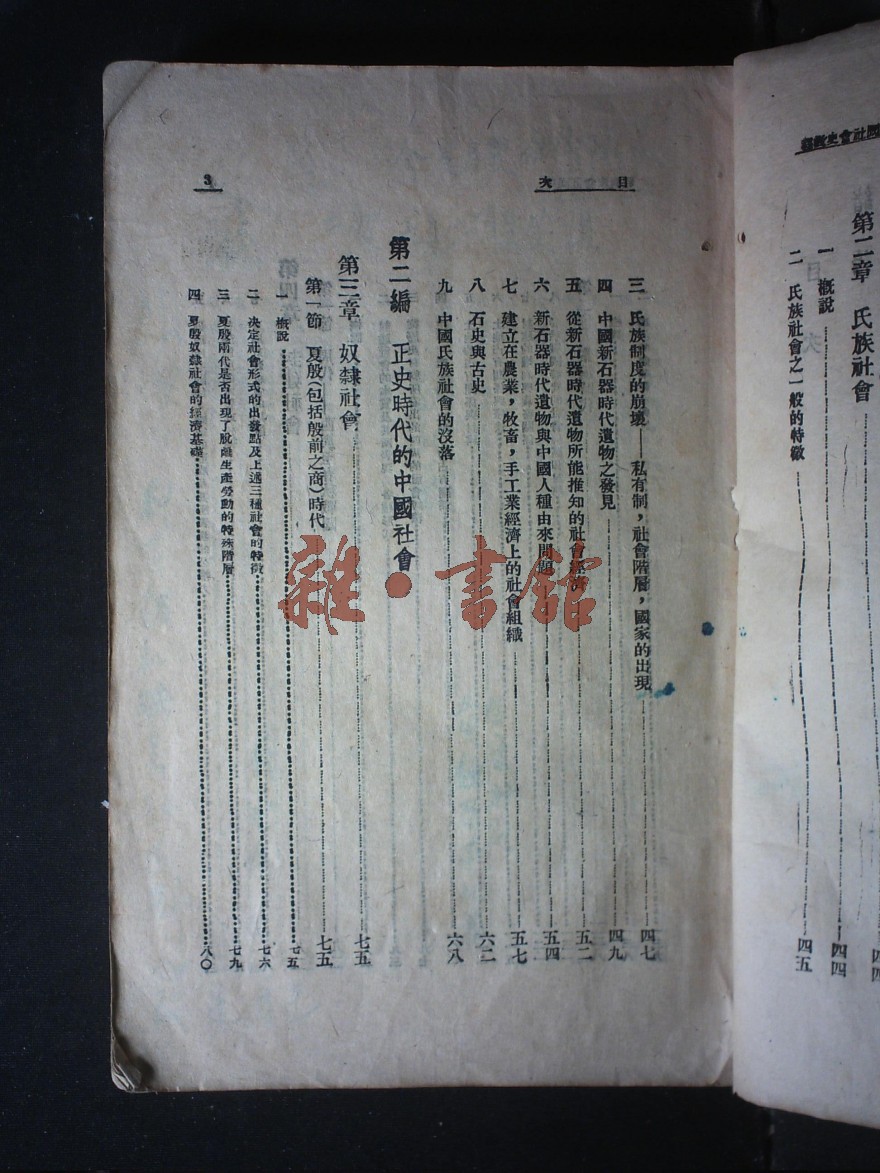 第二章 氏族社會 四四
一 概說 四四
二 氏族社會之一般的特徵 四五
目 次
3
三 氏族制度的崩壞——私有制，社會階層，國家的出現 四七
四 中國新石器時代遺物之發見 四九
五 從新石器時代遺物所能推知的社會經濟 五二
六 新石器時代遺物與中國人種由來問題 五四
七 建立在農業，牧畜，手工業經濟上的社會組織 五七
八 石史與古史 六二
九 中國氏族社會的沒落 六八
第二編 正史時代的中國社會
第三章 奴隸社會 七五
第一節 夏殷（包括殷前之商）時代 七五
一 概說 七五
二 決定社會形式的出發點及上述三種社會的特徵 七六
三 夏殷兩代是否出現了脫離生產勞動的特殊階層 七九
四 夏殷奴隸社會的經濟基礎 八〇
雜·書館